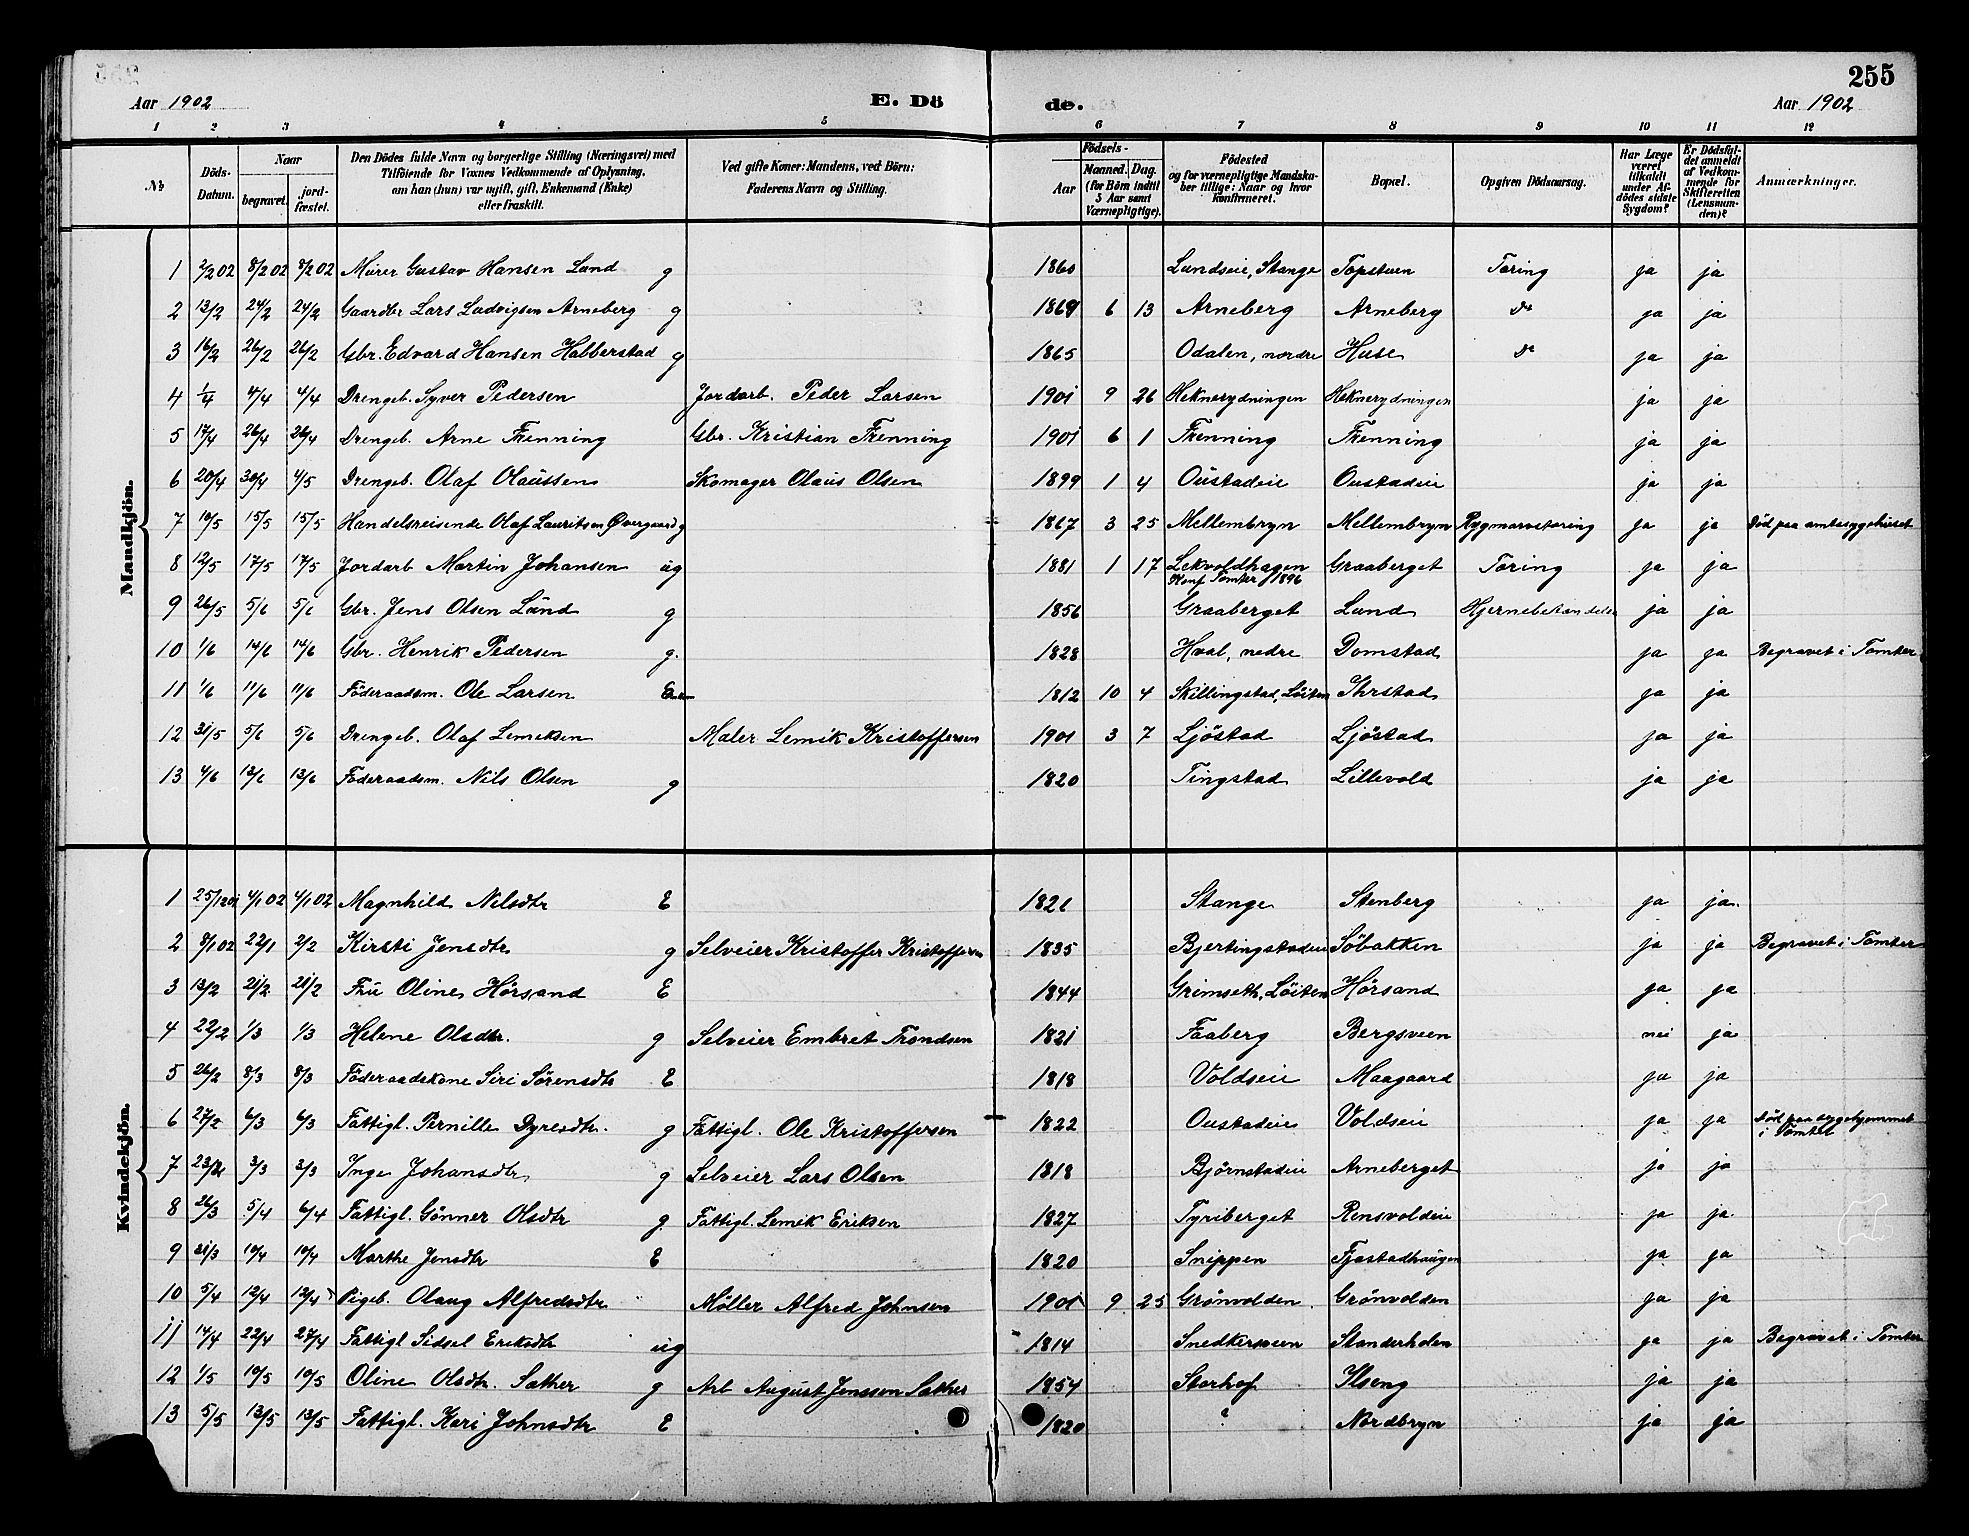 255
Aar 1902 E. Dö de. Aar 1902
1 2 3 4 5 6 7 8 9 10 11 12
No Döds-Datum. Naar begravet. jord-fæstet. Den Dödes fulde Navn og borgerlige Stilling (Næringsvei) med Tilföiende for Voxnes Vedkommende af Oplysning, om han (hun) var ugift, gift, Enkemand (Enke) eller fraskilt. Ved gifte Koner: Mandens, ved Börn: Faderens Navn og Stilling. Födsels- Aar Maaned. Dag. (for Börn indtil 5 Aar samt Værnepligtige). Födested og for værnepligtige Mandska-ber tillige: Naar og hvor konfirmeret. Bopæl. Opgiven Dödsaarsag. Har Læge været tilkaldt under Af-dödes sidste Sygdom? Er Dödsfal-det anmeldt af Vedkom-mende for Skifteretten (Lensman-den)? Anmærkninger.
Mandkjön.
1 2/2 02 8/2 02 8/2 02 Murer Gustav Hansen Lund g 1860 Lundseie, Stange Topsteen Tæring ja ja
2 13/2 24/2 24/2 Gaardbr Lars Ludvigsen Arneberg g 1869 6 13 Arneberg Arneberg do ja ja
3 16/2 26/2 26/2 Gbr. Edvard Hansen Habberstad g 1865 Odalen, nordre Huse do ja ja
4 1/4 4/4 4/4 Drengeb. Syver Pedersen Jordarb. Peder Larsen 1901 9 26 Heknerydningen Heknerydningen ja ja
5 17/4 26/4 26/4 Drengeb. Arne Frenning Gbr. Kristian Frenning 1901 6 1 Frenning Frenning ja ja
6 20/4 30/4 4/5 Drengeb. Olaf Olaussen Skomager Olaus Olsen 1899 1 4 Oustadeie Oustadeie ja ja
7 10/5 15/5 15/5 Handelsreisende Olaf Lauritsen Øvergaard g 1867 3 25 Mellembryn Mellembryn Rygmarvstæring ja ja Död paa amtssygehuset
8 12/5 17/5 17/5 Jordarb Martin Johansen ug 1881 1 17 Lekvoldhagen Konf Tomter 1896 Graaberget Tæring ja ja
9 26/5 5/6 5/6 Gbr. Jens Olsen Lund g 1856 Graaberget Lund ja ja
10 1/6 14/6 14/6 Gbr. Henrik Pedersen g. 1828 Hval, nedre Domstad ja ja Begravet i Tomter
11 1/6 11/6 11/6 Föderaadsm. Ole Larsen 1812 10 4 Skillingstad, Löiten ja ja
12 31/5 5/6 5/6 Drengeb. Olaf Lemiksen Maler Lemik Kristoffersen 1901 3 7 Ljöstad Ljöstad ja ja
13 4/6 13/6 13/6 Föderaadsm. Nils Olsen g 1820 Tingstad Lillevold ja ja
Kvindekjön.
1 25/12 01 4/1 02 4/1 02 Magnhild Nilsdtr E 1821 Stange Stenberg ja ja
2 8/1 02 22/1 2/2 Kirsti Jensdtr g Selveier Kristoffer Kristoffersen 1835 Bjertingstadeie Söbakken ja ja Begravet i Tomter
3 13/2 21/2 21/2 Fru Oline Hörsand E 1844 Grimseth, Löiten Hörsand ja ja
4 22/2 1/3 1/3 Helene Olsdtr. g Selveier Embret Trondsen 1821 Faaberg Bergsveen nei ja
5 26/2 8/3 8/3 Föderaadskone Siri Sörensdtr E 1818 Voldseie Maagaard ja ja
6 27/2 6/3 6/3 Fattigl. Pernille Dyresdtr. g Fattigl. Ole Kristoffersen 1822 Oustadeie Voldseie ja ja Död paa sygehjemmet i Tomter
7 23/2 3/3 3/3 Inge Johansdtr g Selveier Lars Olsen 1818 Björnstadeie Arneberget ja ja
8 26/3 5/4 6/4 Fattigl. Gönner Olsdtr g Fattigl. Lemik Eriksen 1827 Tyriberget Rensvoldeie ja ja
9 31/3 10/4 10/4 Marthe Jensdtr E 1820 Snippen Fjæstadhaugen ja ja
10 5/4 12/4 12/4 Pigeb. Olaug Alfredsdtr Möller Alfred Johnsen 1901 9 25 Grönvolden Grönvolden ja ja
11 14/4 22/4 27/4 Fattigl Sidsel Eriksdtr ug 1814 Snedkersveen Standerholen ja ja Begravet i Tomter
12 1/5 10/5 10/5 Oline Olsdtr. Sæther g Arb August Jenssen Sæther 1854 Storhof Ilseng ja ja
13 5/5 13/5 13/5 Fattigl. Kari Johnsdtr E 1820 ? Nordbryn ja ja